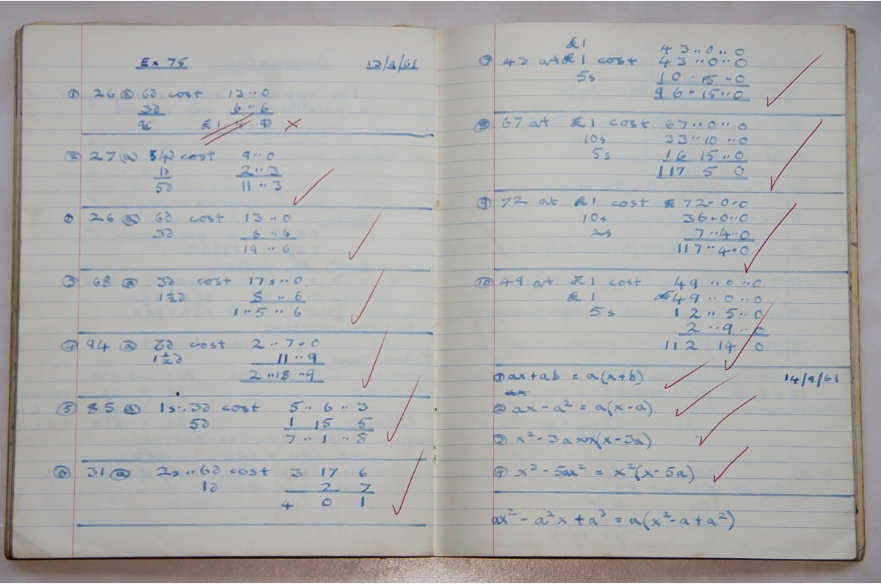 Ex 75 12/9/61
① 26 @ 6d cost 13..0
3d 6..6
② 27 @ 4d cost 9..0
1d 2..3
5d 11..3
① 26 @ 6d cost 13..0
3d 6..6
19..6
③ 68 @ 3d cost 17s..0
1½d 8..6
1..5..6
④ 94 @ 6d cost 2..7..0
1½d 11..9
2..18..9
⑤ 85 @ 1s..3d cost 5..6..3
5d 1 15 5
7..1..8
⑥ 31 @ 2s..6d cost 3 17 6
1d 2 7
4 0 1
£1 43..0..0
⑦ 43 at £1 cost 43..0..0
5s 10..15..0
96..15..0
⑧ 67 at £1 cost 67..0..0
10s 33..10..0
5s 16 15..0
117 5 0
⑨ 72 at £1 cost £72-0-0
10s 36-0-0
2s 7..4..0
117..4..0
⑩ 49 at £1 cost 49..0..0
£1 49..0..0
5s 12..5..0
2..9..0
112 14 0
① ax+ab = a(x+b) 14/9/61
② ax-a² = a(x-a)
③ x²-3ax=x(x-3a)
④ x³-5ax² = x²(x-5a)
ax²-a²x+a³ = a(x²-a+a²)